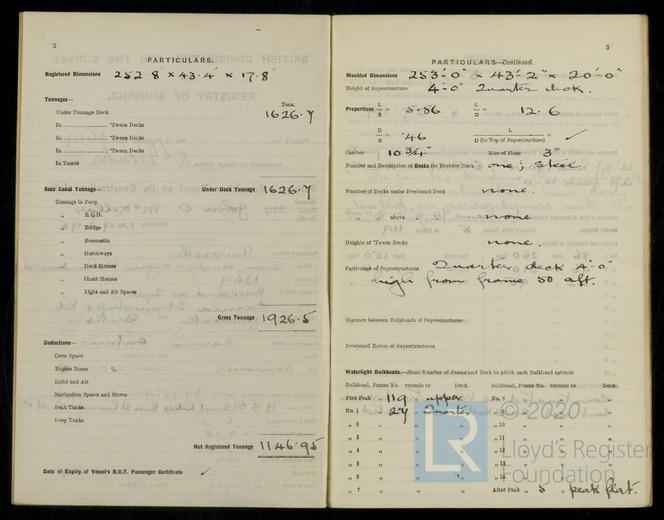 2
PARTICULARS.
Registered Dimensions 252.8' × 43.4' × 17.8'
Tonnages—
Tons.
Under Tonnage Deck 1626.7
In 'Tween Decks
In 'Tween Decks
In 'Tween Decks
In Turret
Suez Canal Tonnage— Under Deck Tonnage 1626.7
Tonnage in Poop
" B.Q.D.
" Bridge
" Forecastle
" Hatchways
" Deck Houses
" Chart Houses
" Light and Air Spaces
Gross Tonnage 1926.5
Deductions—
Crew Space
Engine Room %
Light and Air
Navigation Spaces and Stores
Peak Tanks
Deep Tanks
Net Registered Tonnage 1146.95
Date of Expiry of Vessel's B.O.T. Passenger Certificate ✓
3
PARTICULARS—Continued.
Moulded Dimensions 253'-0" × 43'-2" × 20'-0"
Height of Superstructure 4'-0" Quarter deck.
Proportions L/B = 5.86 L/D = 12.6
D/B = .46 L/D (to Top of Superstructure) = ✓
Camber 10 3/4" Rise of Floor 3"
Number and Description of Decks for Register Book one; steel.
Number of Decks under Freeboard Deck none.
" " above " none
Heights of 'Tween Decks none.
Particulars of Superstructures Quarter deck 4'-0"
high from frame 50 aft.
Distance between Bulkheads of Superstructures
Freeboard Ratios of Superstructures
Watertight Bulkheads.—State Number of Frame and Deck to which each Bulkhead extends
Bulkhead, Frame No. extends to Deck. Bulkhead, Frame No. extends to Deck.
Fore Peak " 119 " upper No. 8 " "
No. 1 " 27 " Quarter " 9 " "
" 2 " " " 10 " "
" 3 " " " 11 " "
" 4 " " " 12 " "
" 5 " " " 13 " "
" 6 " " " 14 " "
" 7 " " After Peak " 5 " peak flat.
© 2020
LR
Lloyd's Register
Foundation